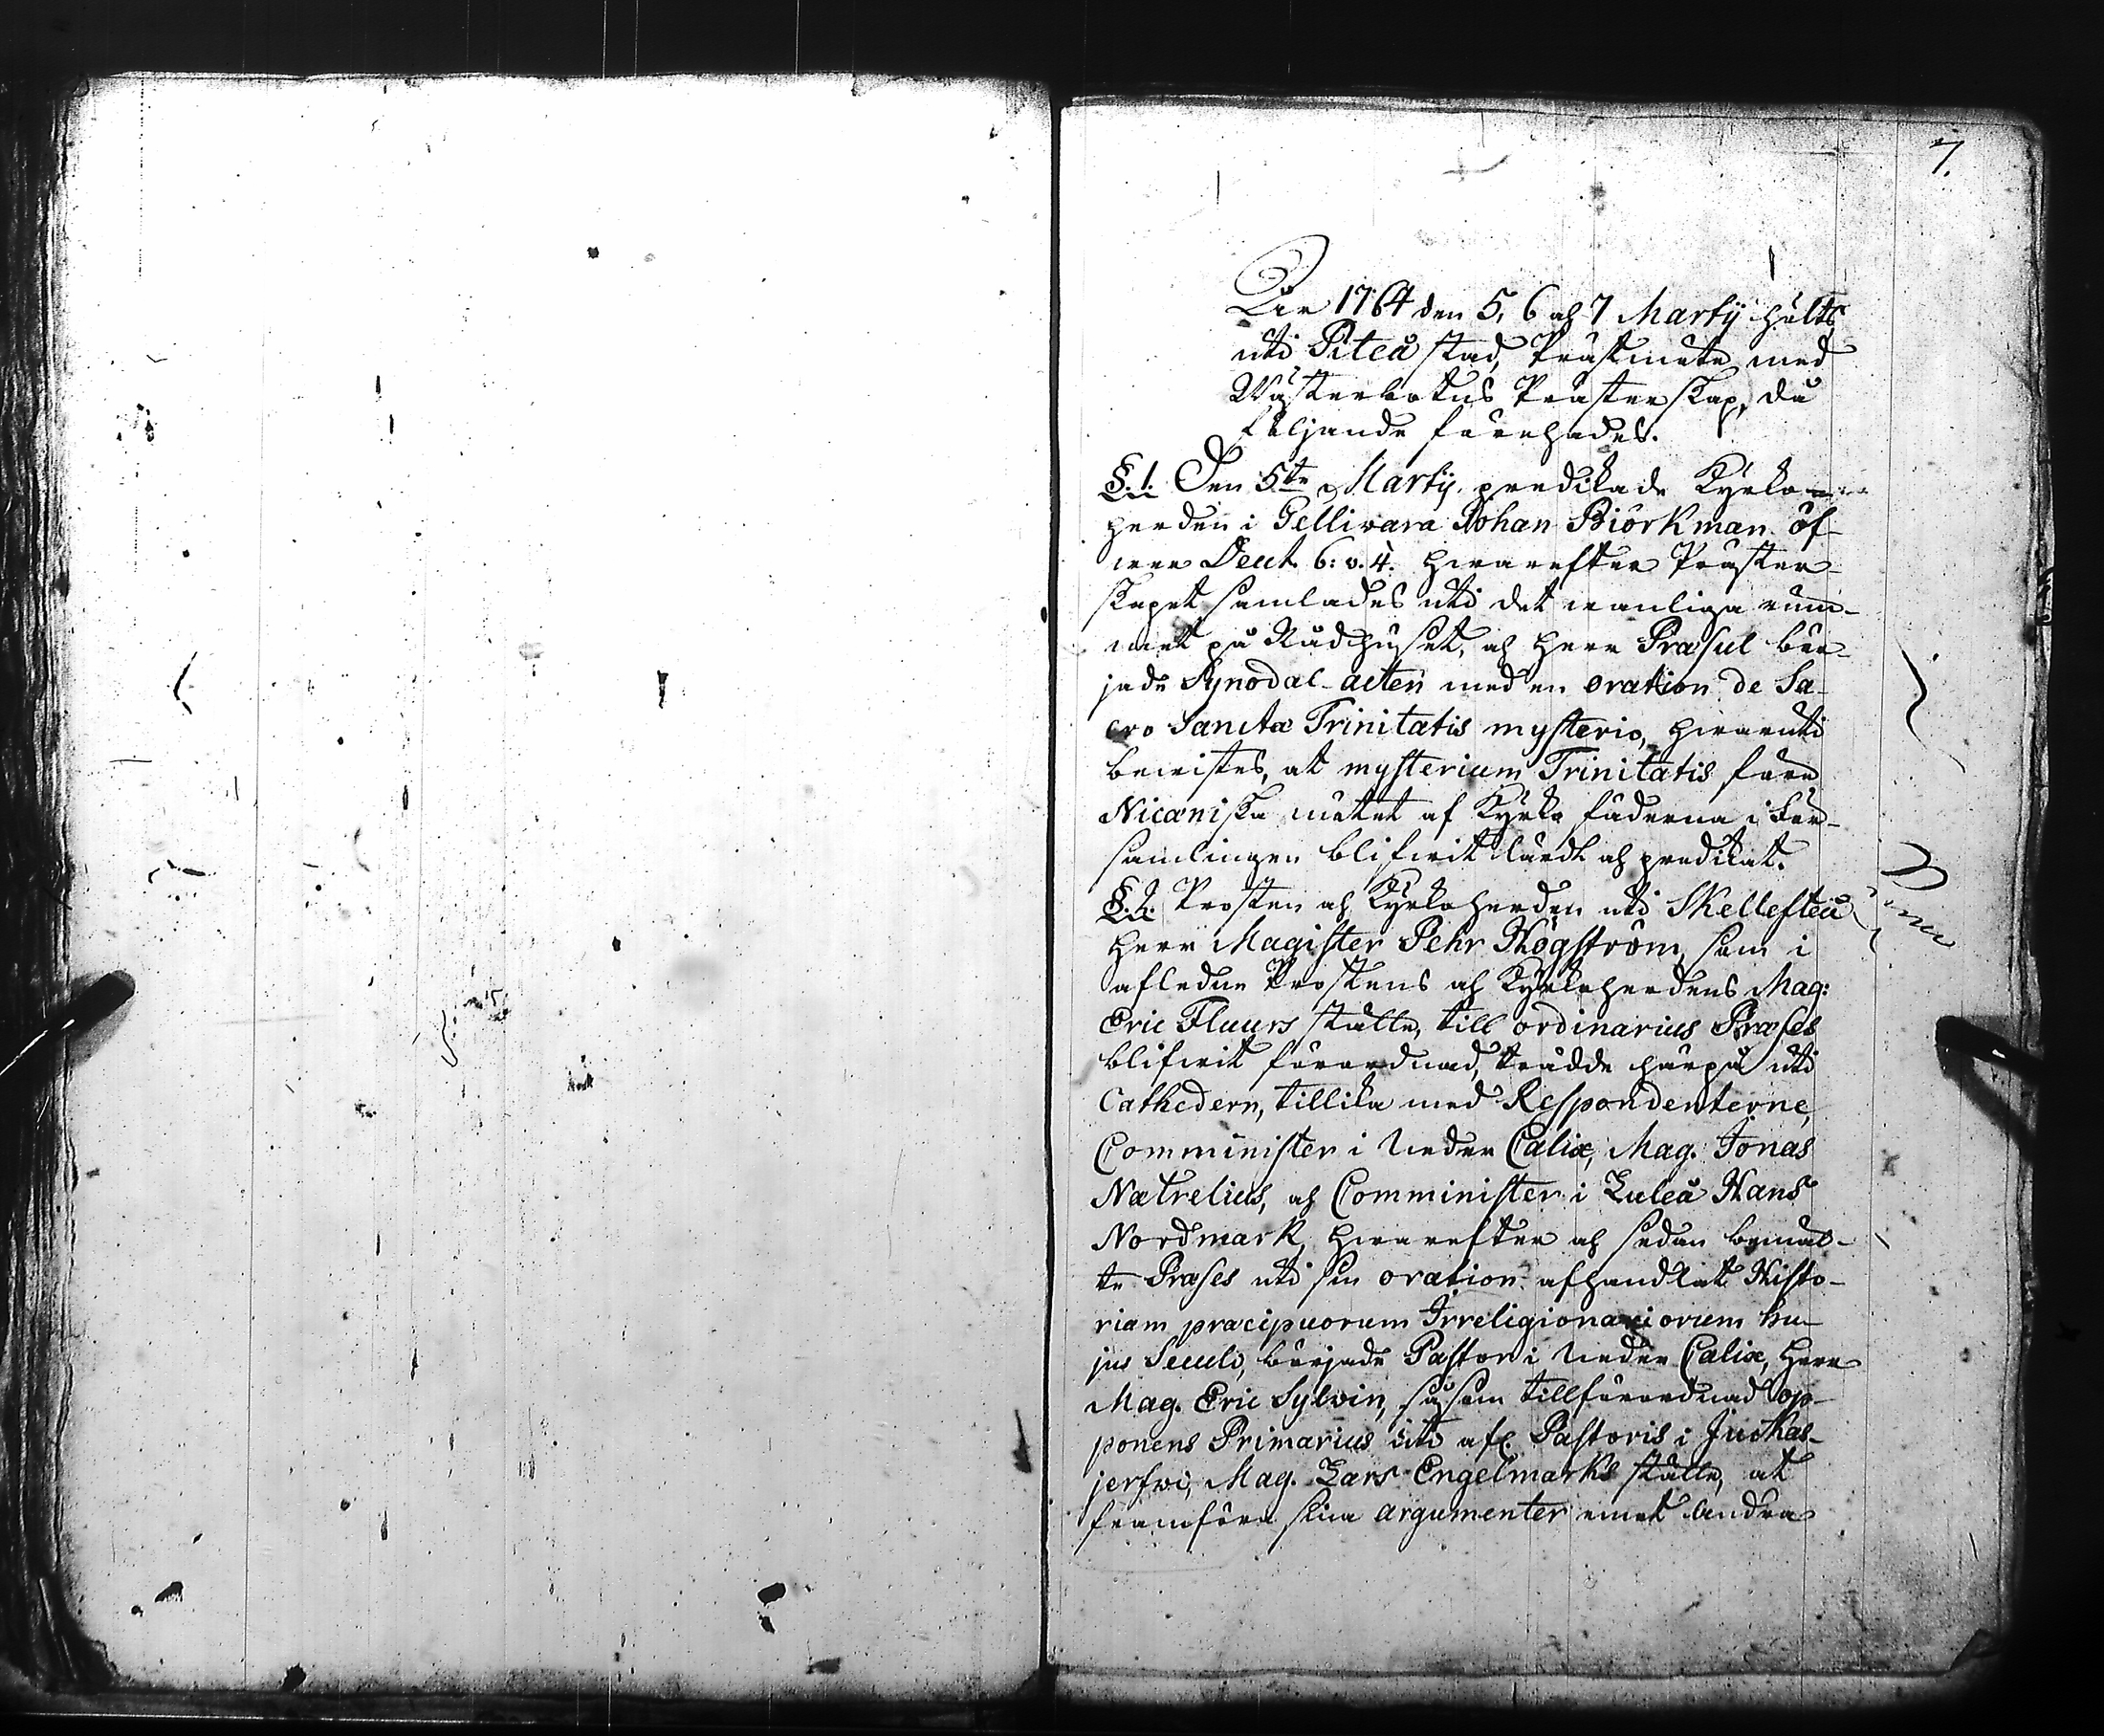 7.
År 1764 den 5, 6 och 7 Martij hölts
uti Piteå stad, Prästmöte med
Wästerbotns Prästerskap, då
följande förehades.
§. 1. Den 5te Martij predikade Kyrko-
herden i Gellivara Johan Biörkman öf-
wer Deut. 6: v. 4. hwarefter Präster-
skapet samlades uti det wanliga rum-
met på Rådhuset, och Herr Præsul bör-
jade Synodal-acten med en oration de Sa-
cro Sanctæ Trinitatis mysterio, hwaruti
bewistes, at mysterium Trinitatis före
Nicæniska mötet af Kyrko fäderna i För-
samlingen blifwit lärdt och predikat.
§. 2. Prosten och Kyrkoherden uti Skellefteå
Herr Magister Pehr Högström, som i
afledne Prostens och Kyrkoherdens Mag:
Eric Fluurs ställe, till ordinarius Præses
blifwit förordnad, trädde härpå uti
Cathedern, tillika med Respondenterne,
Comminister i Neder Calix, Mag. Jonas
Nætrelius, och Comminister i Luleå Hans
Nordmark, hwarefter och sedan bemäl-
te Præses uti sin oration afhandlat Histo-
riam præcipuorum Irreligionariorum hu-
jus Seculi, började Pastor i Neder Calix, Herr
Mag. Eric Sylvin, såsom tillförordnad op-
ponens Primarius uti afl. Pastoris i Juckas-
jerfwi, Mag. Lars Engelmarks ställe, at
framföra sina argumenter emot andra